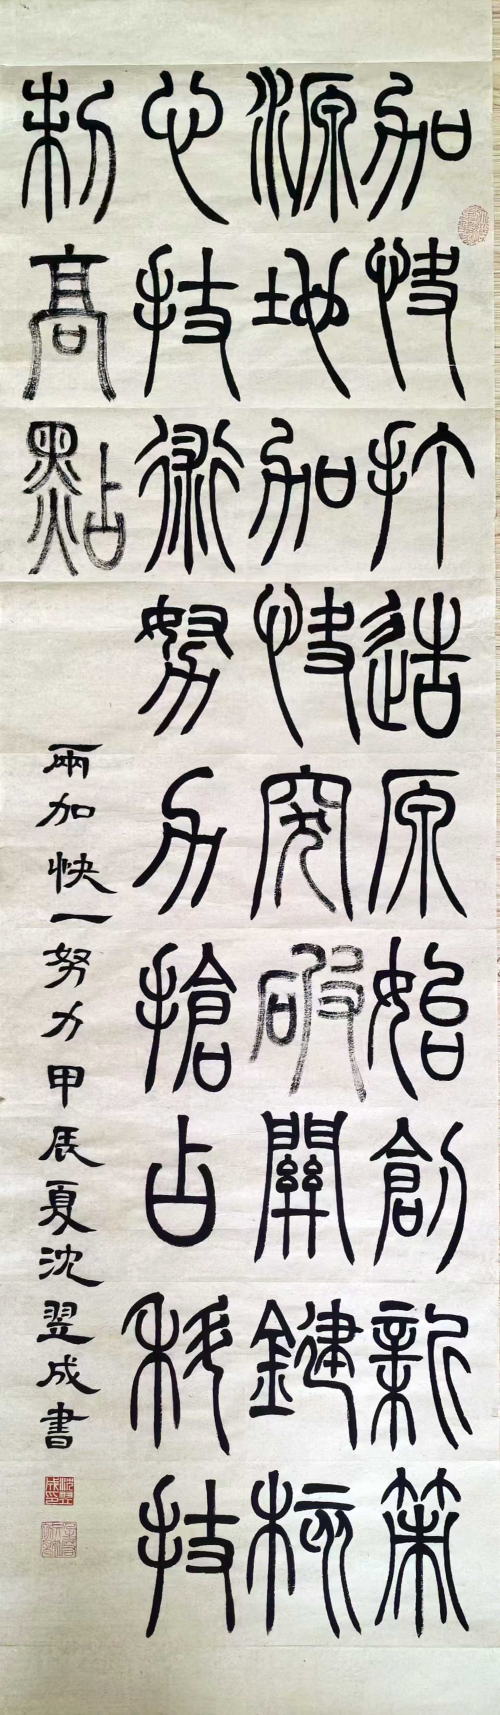 加快打造原始創新策
源地加快突破關鍵核
心技術努力搶占科技
制高點
兩加快一努力甲辰夏沈翌成書
沈翌成印